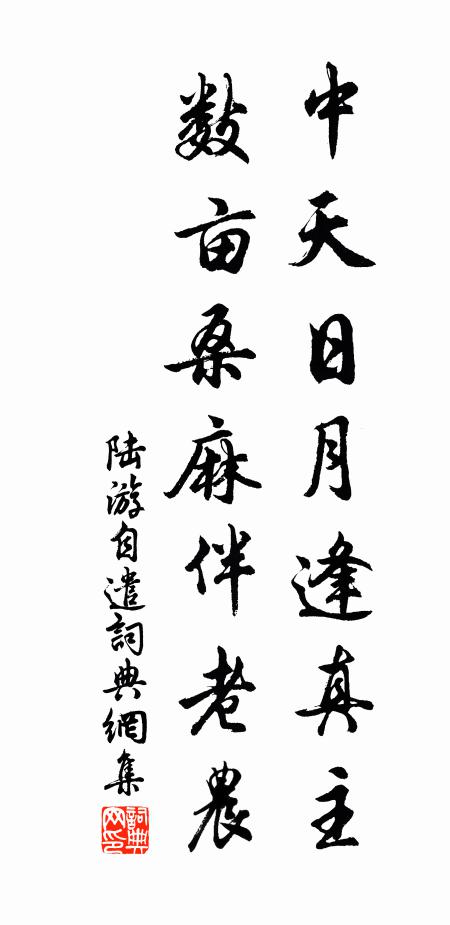 中天日月逢真主
数亩桑麻伴老農
陆游自遣詞典網集
詞典网印